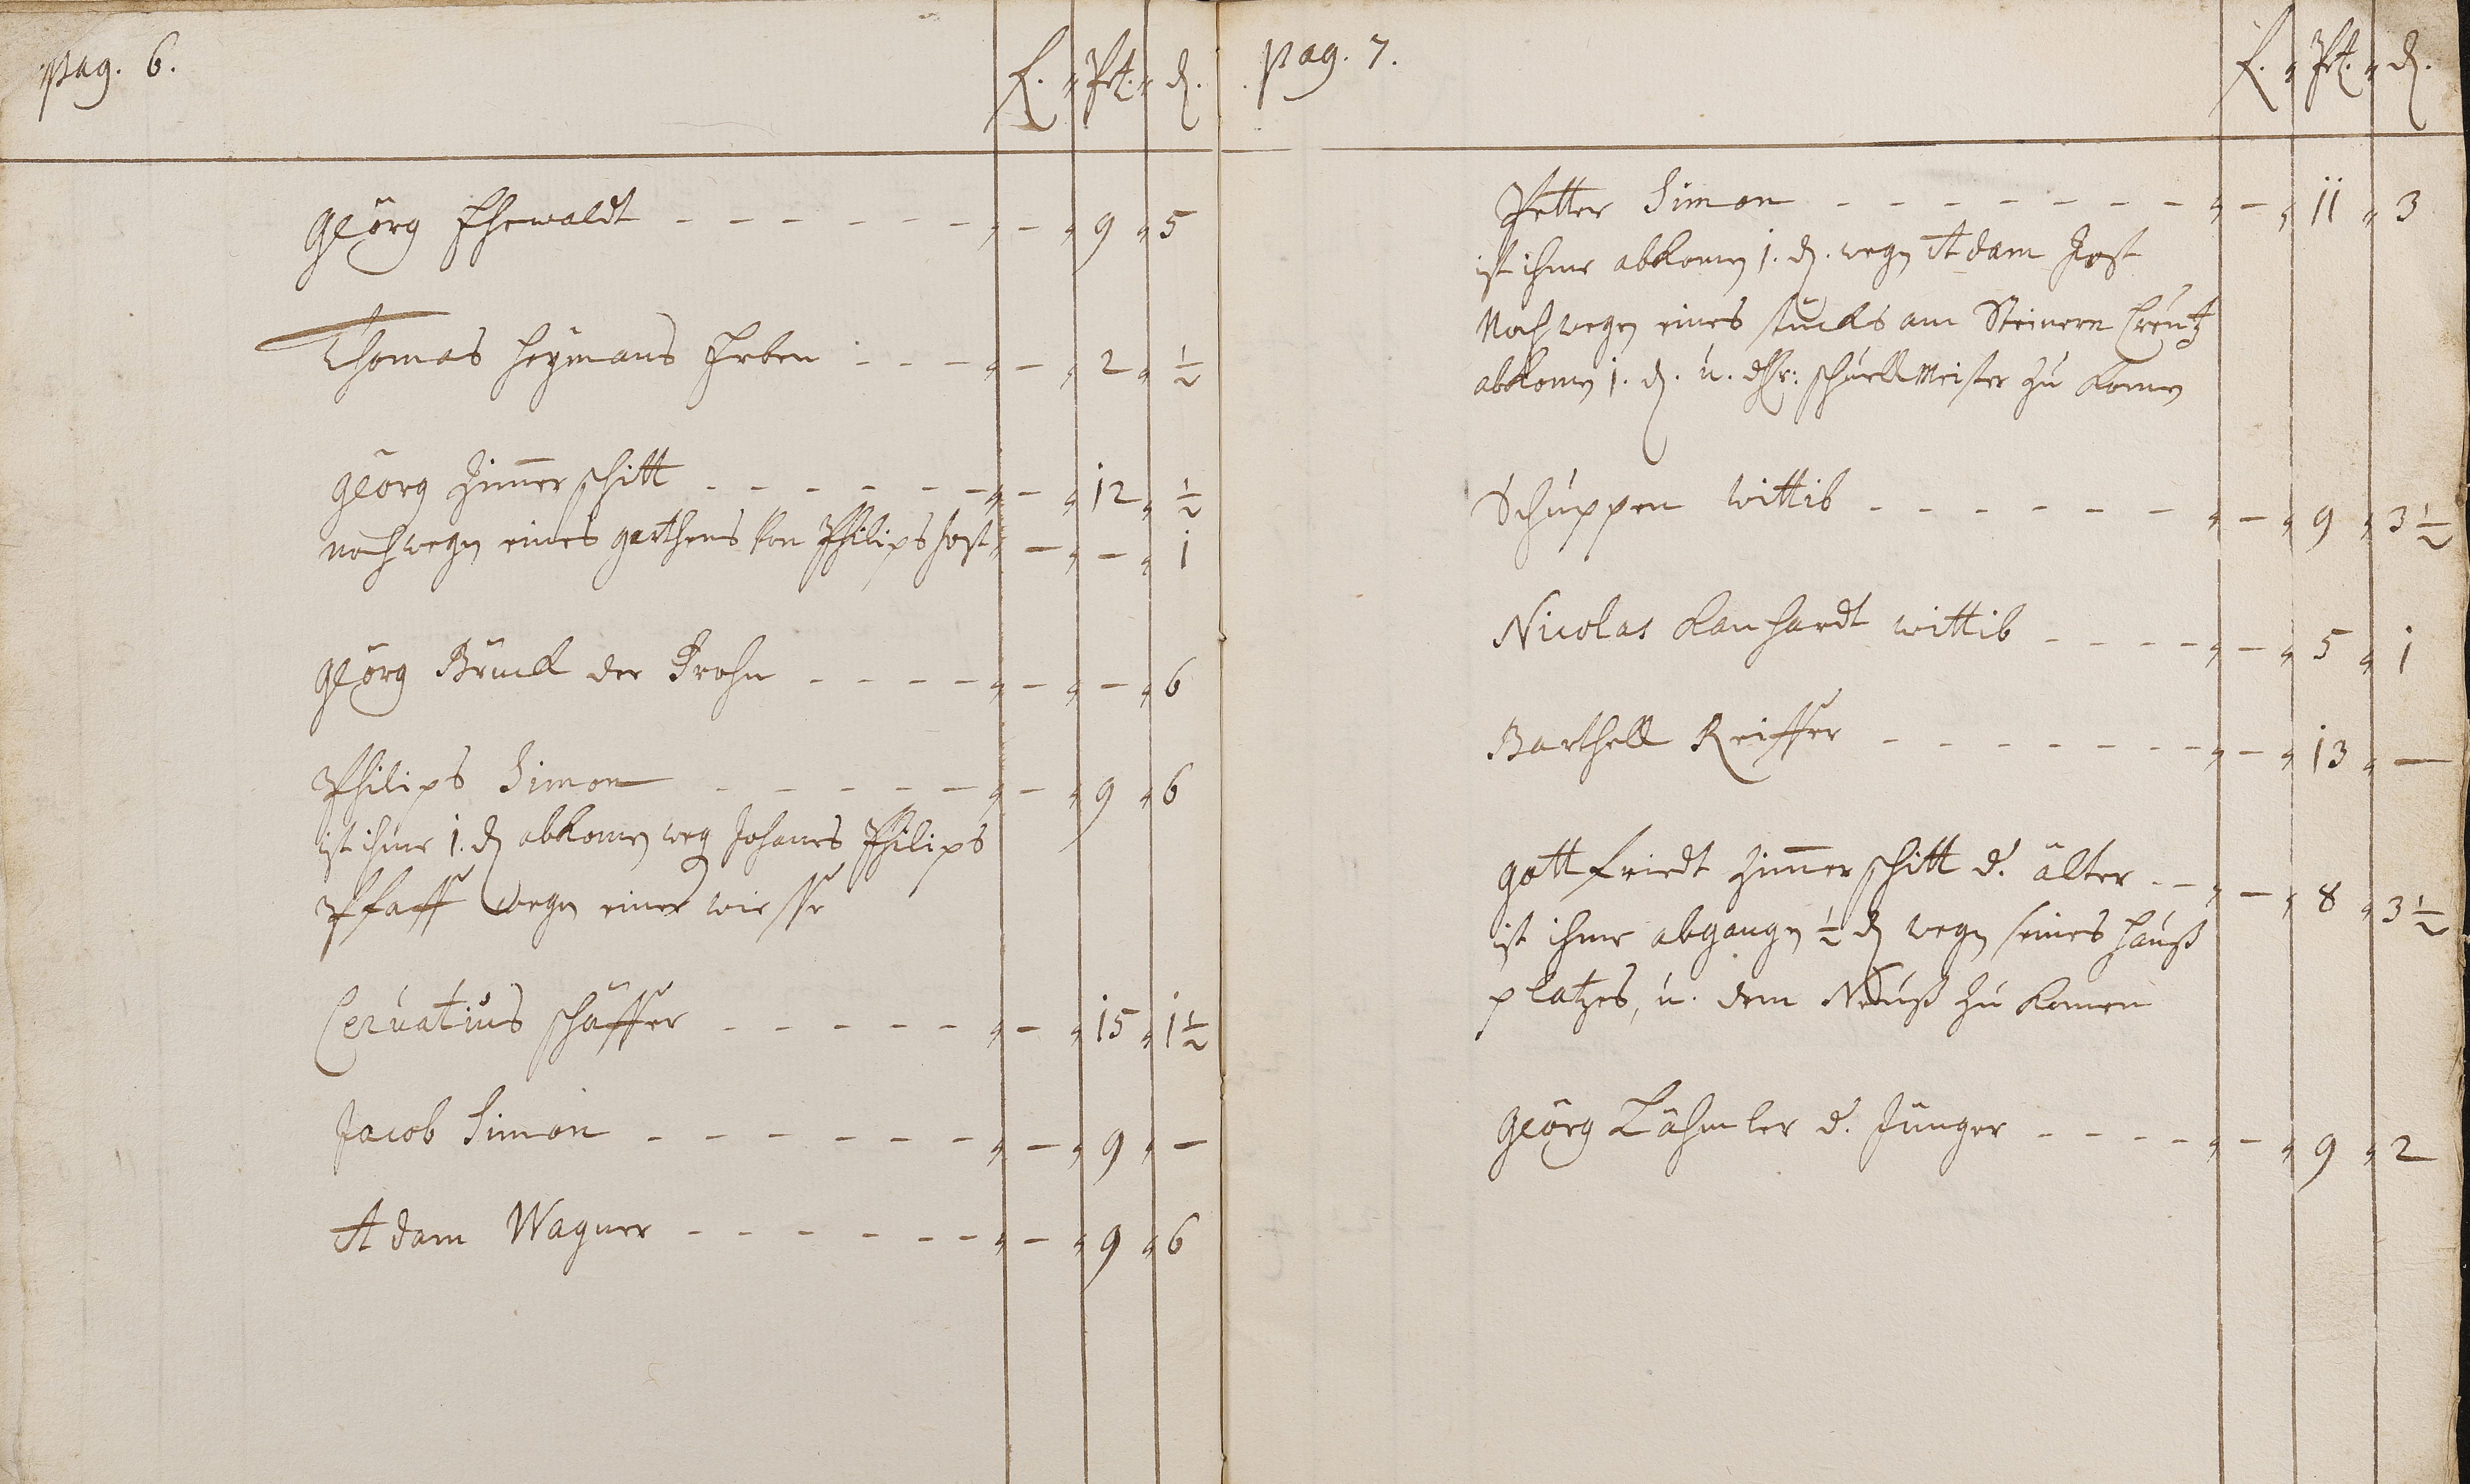 pag. 6.
f. " Pt. " d.
Geörg Ehewaldt - - - - - - - " - " 9 " 5
Thomas Heÿmans Erben - - - - " - " 2 " ½
Geörg Zim̄erschitt - - - - - - " - " 12 " ½
noch wegen eines garthens von Philips Jost " - " - " 1
Geörg Brück der Frohn - - - - " - " - " 6
Philips Simon - - - - - " - " 9 " 6
ist ihme 1. d abkomen weg Johanes Philips
Pfaff wegen einer wiesse
Ceruatius schäffer - - - - - " - " 15 " 1½
Jacob Simon - - - - - - " - " 9 " -
Adam Wagner - - - - - - " - " 9 " 6
pag. 7.
f. " Pt. " d.
Petter Simon - - - - - - - " - " 11 " 3
ist ihme abkomen 1. d. wegen Adam Jost
Noch wegen eines stucks am Steinern Creutz
abkomen 1. d. u. schuellMeister zu komen
Schuppen wittib - - - - - - " - " 9 " 3½
Nicolas Lanhardt wittib - - - - " - " 5 " 1
Barthell Reiffer - - - - - - - " - " 13 " -
Gottfriedt Zim̄erschitt d. älter - - " - " 8 " 3½
ist ihme abgangen ½ d wegen seines hauß
platzes, u. dem zu komen
Geörg Lähmler d. Jünger - - - - " - " 9 " 2